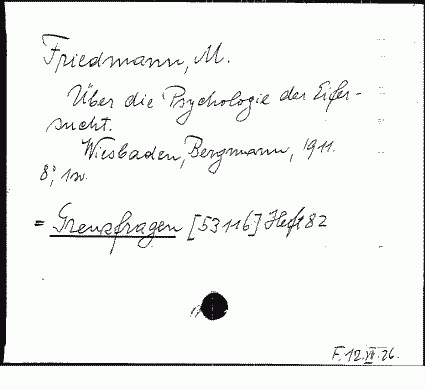 Friedmann, M.
Über die Psychologie der Eifer-
sucht.
Wiesbaden, Bergmann, 1911.
8°,
= Grenzfragen [53116] Heft 82
F. 12. VII. 26.